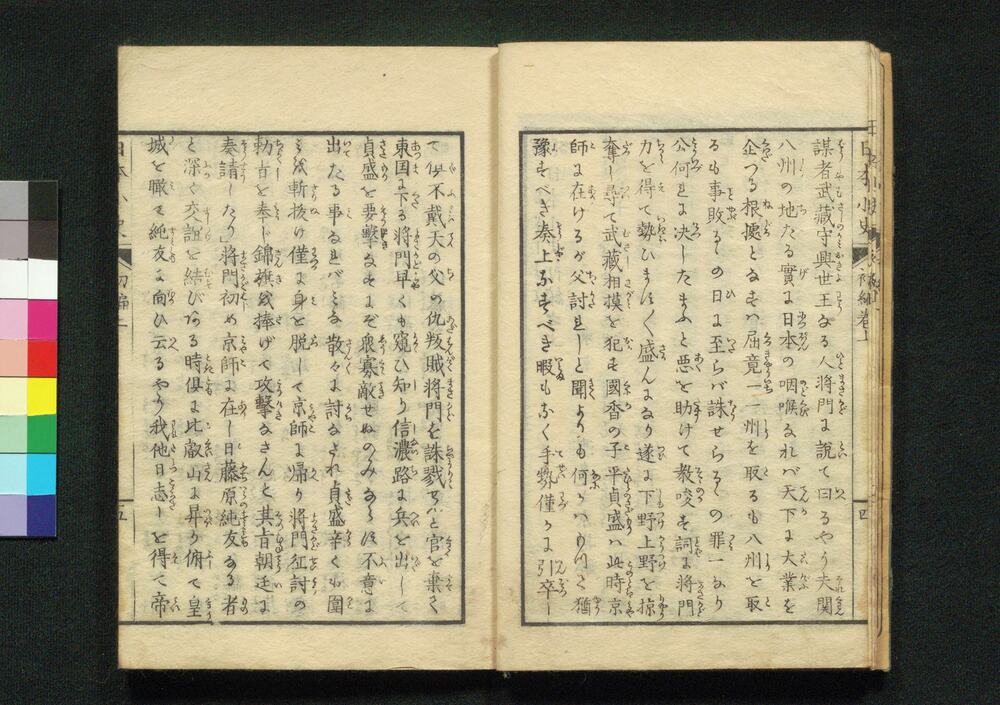 謀者武藏守興世王なる人將門に說て曰るやう夫関
八州の地たる實に日本の咽喉なれバ天下に大業を
企つる根據となすハ屈竟一一州を取るも八州を取
るも事敗るゝの日に至らバ誅せらるゝの罪一なり
公何れに决したまふと悪を助けて教唆す詞に將門
力を得て勢ひます〱盛んになり遂に下野上野を掠
奪し尋て武藏相摸を犯す國香の子平貞盛ハ此時京
師に在けるが父討れしと聞よりも何かハもつて猶
豫すべき奏上なすべき暇もなく手勢僅かに引卒し
て倶不戴天の父の仇叛賊將門を誅戮せバと官を棄て
東国に下る將門早くも窺ひ知り信濃路に兵を出して
貞盛を要撃なすにぞ衆寡敵せぬのみならず不意に
出たる事なれバミな散々に討なされ貞盛辛くも圍
ミを斬抜け僅に身を脱して京師に帰り將門征討の
勅旨を奉じ錦旗を捧げて攻擊なさんと其旨朝廷に
奏請したり」將門初め京師に在し日藤原純友なる者
と深く交誼を結びある時俱に比叡山に昇り俯て皇
城を瞰て純友に向ひ云るやう我他日志しを得て帝
日本小史
初編上
五
日本小史
初編巻上
四